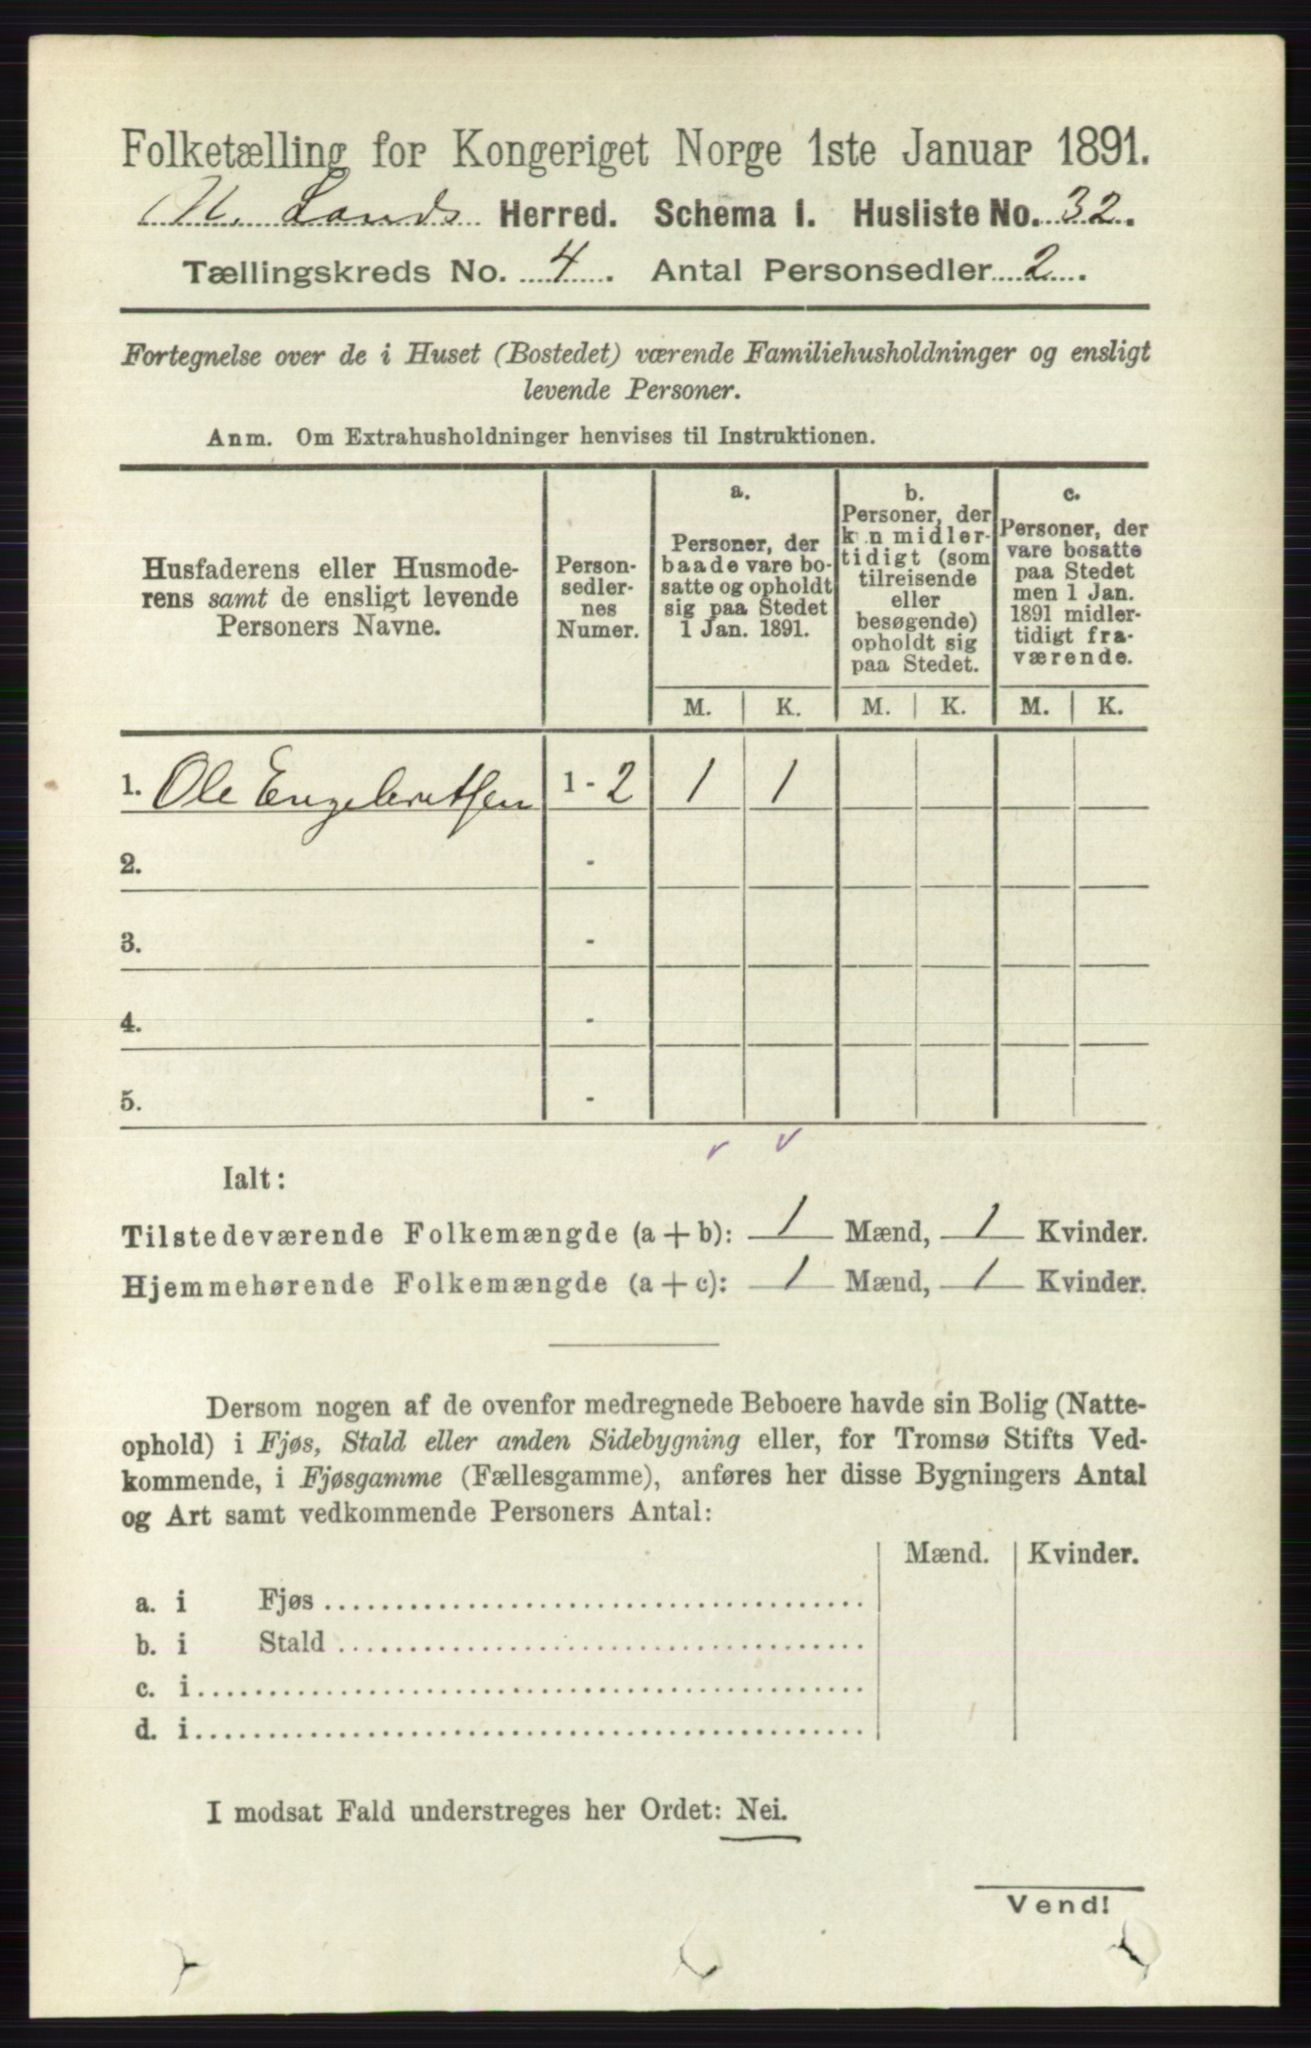 Folketælling for Kongeriget Norge 1ste Januar 1891.
N. Lands Herred. Schema I. Husliste No. 32.
Tællingskreds No. 4. Antal Personsedler 2.
Fortegnelse over de i Huset (Bostedet) værende Familiehusholdninger og ensligt
levende Personer.
Anm. Om Extrahusholdninger henvises til Instruktionen.
Husfaderens eller Husmode-
rens samt de ensligt levende
Personers Navne.
Person-
sedler-
nes
Numer.
a.
Personer, der
baade vare bo-
satte og opholdt
sig paa Stedet
1 Jan. 1891.
b.
Personer, der
kun midler-
tidigt (som
tilreisende
eller
besøgende)
opholdt sig
paa Stedet.
c.
Personer, der
vare bosatte
paa Stedet
men 1 Jan.
1891 midler-
tidigt fra-
værende.
M. K. M. K. M. K.
1. Ole Engebretsen 1 - 2 1 1
2. -
3. -
4. -
5. -
Ialt:
Tilstedeværende Folkemængde (a + b): 1 Mænd, 1 Kvinder.
Hjemmehørende Folkemængde (a + c): 1 Mænd, 1 Kvinder.
Dersom nogen af de ovenfor medregnede Beboere havde sin Bolig (Natte-
ophold) i Fjøs, Stald eller anden Sidebygning eller, for Tromsø Stifts Ved-
kommende, i Fjøsgamme (Fællesgamme), anføres her disse Bygningers Antal
og Art samt vedkommende Personers Antal:
Mænd. Kvinder.
a. i Fjøs
b. i Stald
c. i
d. i
I modsat Fald understreges her Ordet: Nei.
Vend!